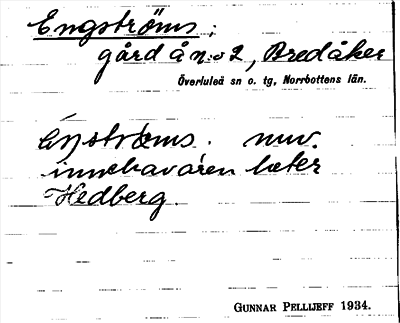 Engströms;
gård å n:o 2, Bredåker
Överluleå sn o. tg, Norrbottens län.
nuv.
innehavaren heter
Hedberg.
GUNNAR PELLIJEFF 1934.